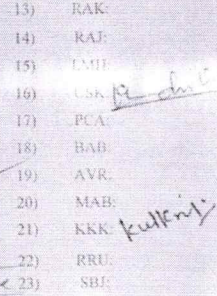 13) RAK:
14) RAJ:
15) LMH:
16) CSK:
17) PCA:
18) BAB:
19) AVR.
20) MAB:
21) KKK:
22) RRU:
23) SBJ: